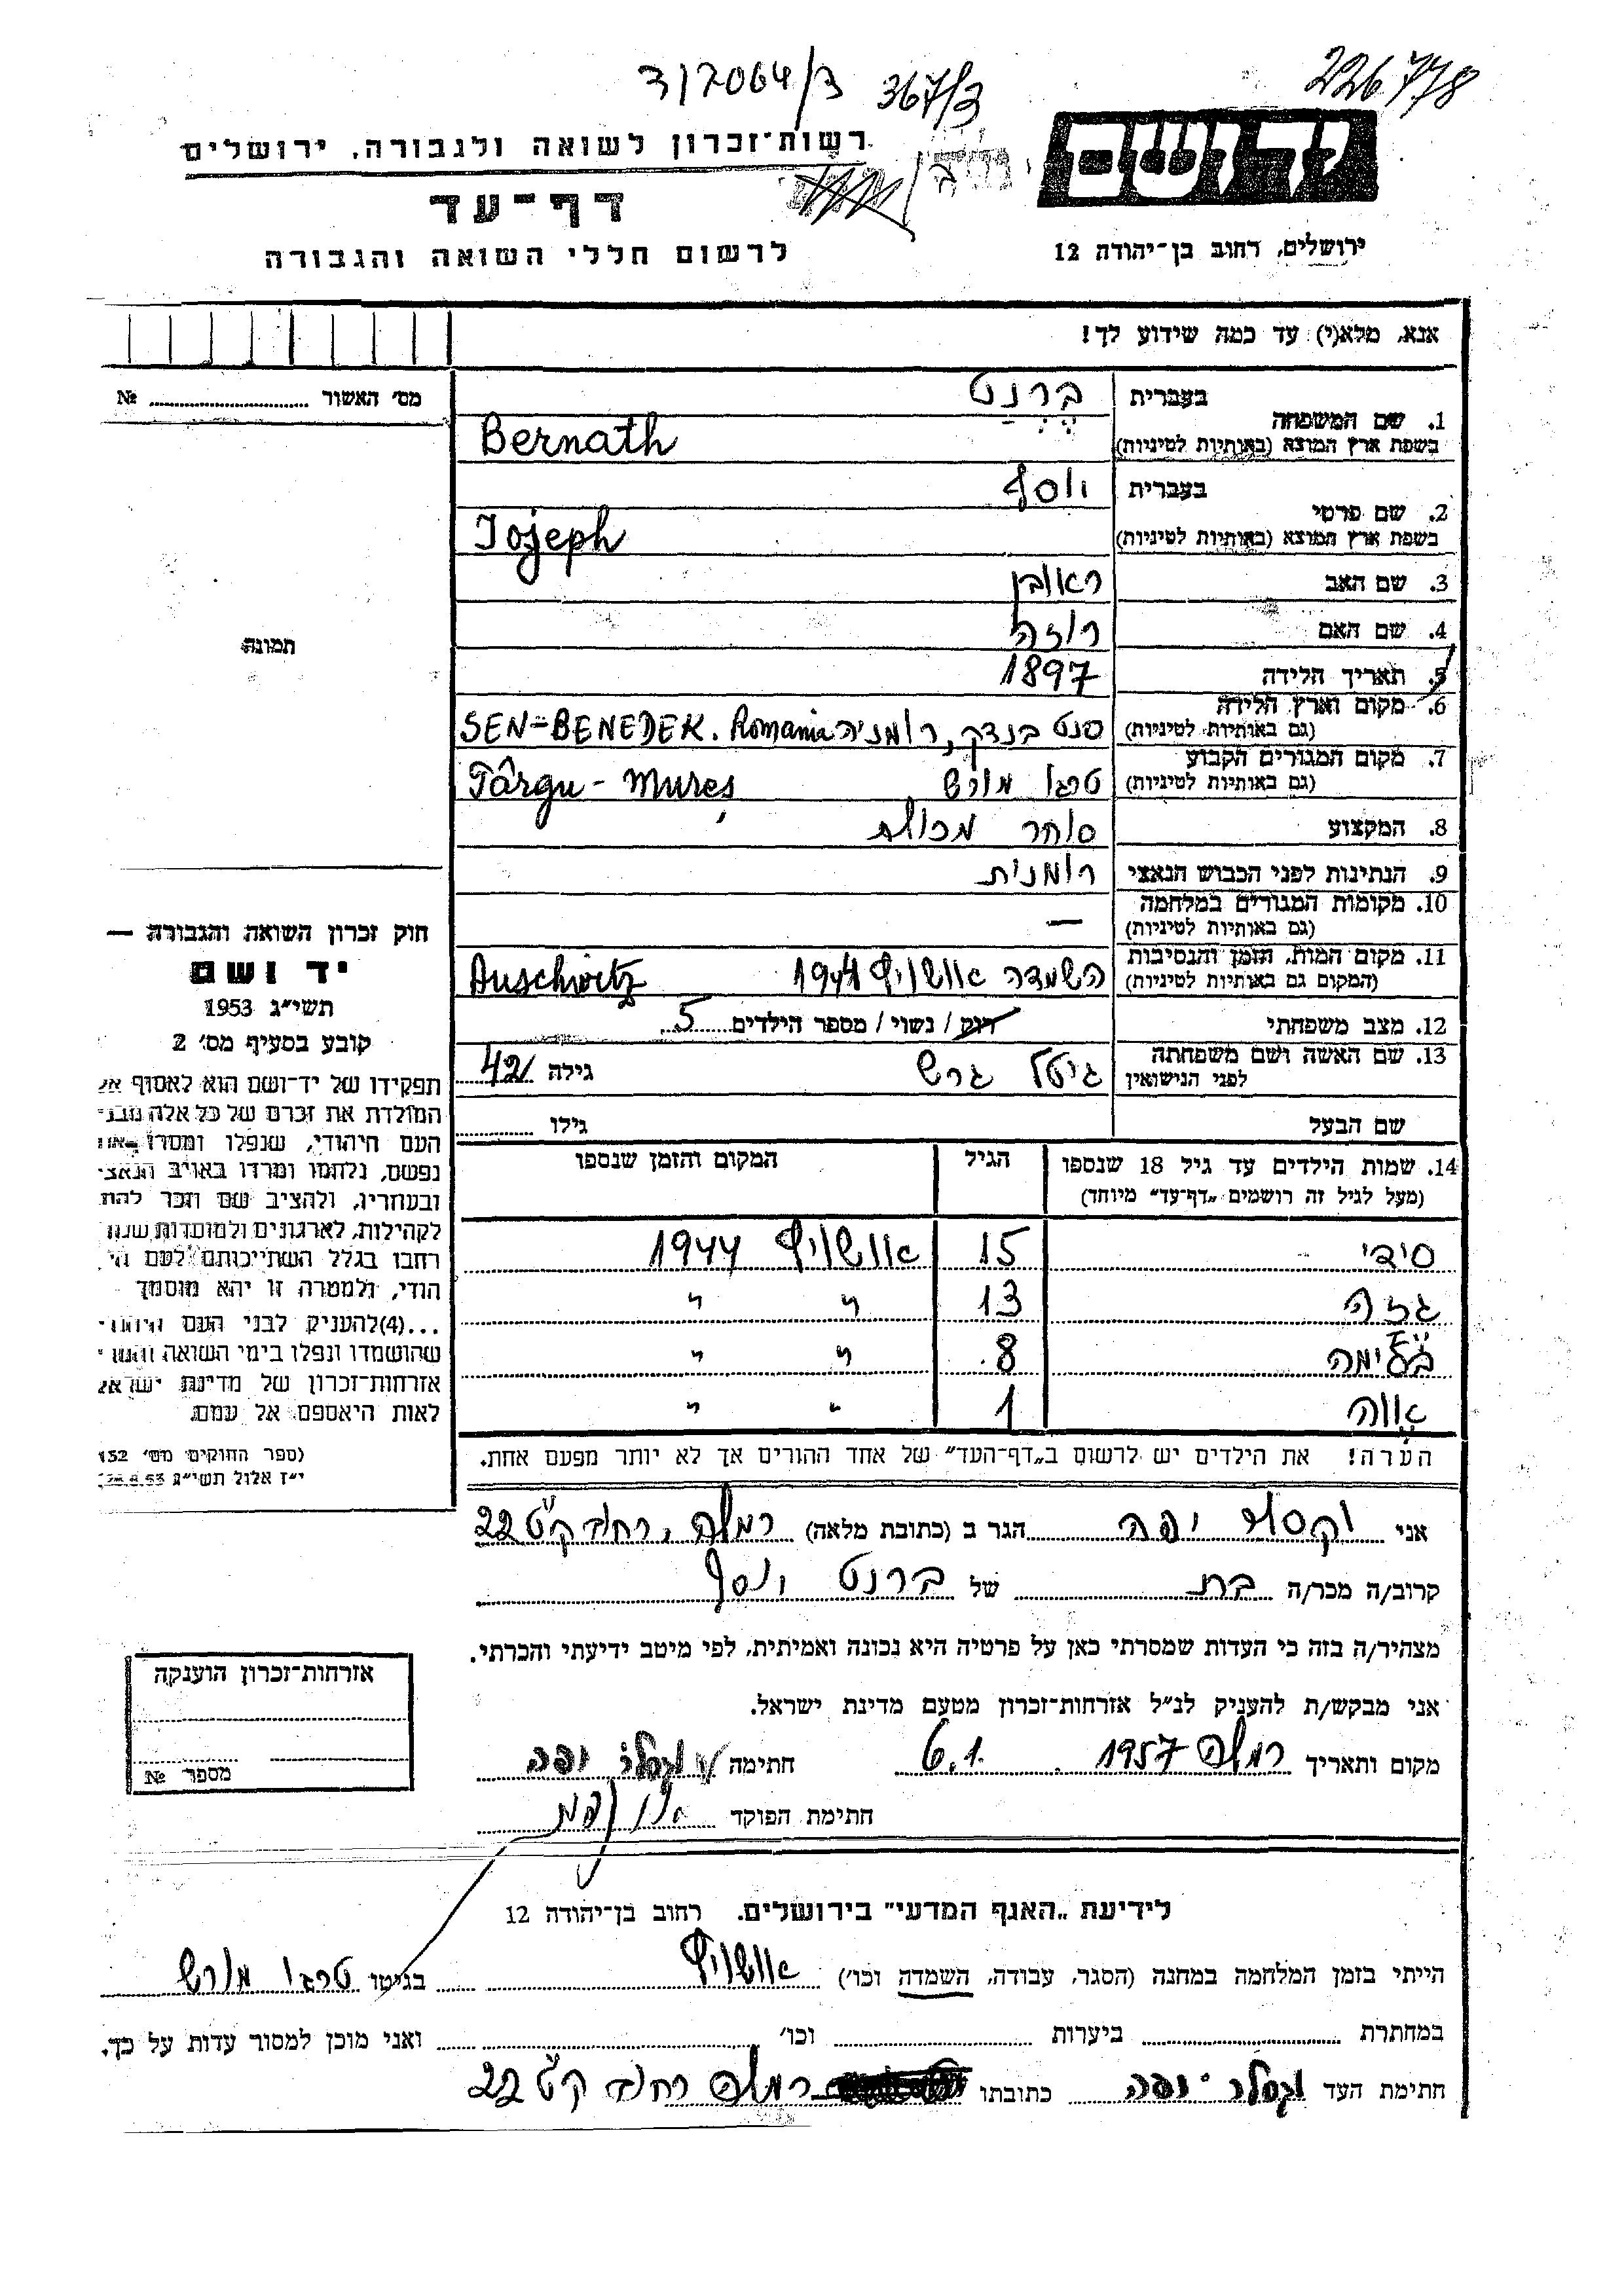 226778
367/3
3/2064/3
יד ושם
רשות־זכרון לשואה ולגבורה, ירושלים
דף־עד
לרשום חללי השואה והגבורה
ירושלים, רחוב בן־יהודה 12
אנא, מלא(י) עד כמה שידוע לך!
מס׳ האשור № 
תמונה
1. שם המשפחה
בעברית ברנט
בשפת ארץ המוצא (באותיות לטיניות) Bernath
2. שם פרטי
בעברית יוסף
בשפת ארץ המוצא (באותיות לטיניות) Iojeph
3. שם האב ראובן
4. שם האם רוזה
5. תאריך הלידה 1897
6. מקום וארץ הלידה
(גם באותיות לטיניות) סנט בנדק, רומניה SEN=BENEDEK. Romania
7. מקום המגורים הקבוע
(גם באותיות לטיניות) טרגו מורש Târgu - Mureș
8. המקצוע סוחר מכולת
9. הנתינות לפני הכבוש הנאצי רומנית
10. מקומות המגורים במלחמה
(גם באותיות לטיניות) —
11. מקום המות, הזמן והנסיבות
(המקום גם באותיות לטיניות) השמדה אושויץ 1944 Auschwitz
12. מצב משפחתי רווק / נשוי / מספר הילדים 5
13. שם האשה ושם משפחתה
לפני הנישואין גיטל גרש גילה 42
שם הבעל גילו
14. שמות הילדים עד גיל 18 שנספו הגיל המקום והזמן שנספו
(מעל לגיל זה רושמים „דף־עד" מיוחד)
סידי 15 אושויץ 1944
גזה 13 " "
8 " "
אווה 1 " "
הערה! את הילדים יש לרשום ב„דף־העד" של אחד ההורים אך לא יותר מפעם אחת.
חוק זכרון השואה והגבורה —
יד ושם
תשי״ג 1953
קובע בסעיף מס׳ 2
תפקידו של יד־ושם הוא לאסוף אל
המולדת את זכרם של כל אלה מבני
העם היהודי, שנפלו ומסרו את
נפשם, נלחמו ומרדו באויב הנאצי
ובעוזריו, ולהציב שם וזכר להם
לקהילות, לארגונים ולמוסדות שנח
רחבו בגלל השתייכותם לעם הי
הודי, ולמטרה זו יהא מוסמך
...(4)להעניק לבני העם היהודי
שהושמדו ונפלו בימי השואה והמרי
אזרחות־זכרון של מדינת ישראל
לאות היאספם אל עמם.
(ספר החוקים מס׳ 132
י״ז אלול תשי״ג 28.8.53
אני יפה הגר ב (כתובת מלאה) רמלה, רחוב ק״ט 22
קרוב/ה מכר/ה בת של ברנט יוסף
מצהיר/ה בזה כי העדות שמסרתי כאן על פרטיה היא נכונה ואמיתית, לפי מיטב ידיעתי והכרתי.
אני מבקש/ת להעניק לנ״ל אזרחות־זכרון מטעם מדינת ישראל.
מקום ותאריך רמלה 1957 6.1. חתימה יפה
חתימת הפוקד
אזרחות־זכרון הוענקה
מספר №
לידיעת „האגף המדעי" בירושלים. רחוב בן־יהודה 12
הייתי בזמן המלחמה במחנה (הסגר, עבודה, השמדה וכו׳) אושויץ בגיטו טרגו מורש
במחתרת ביערות וכו׳ ואני מוכן למסור עדות על כך.
חתימת העד יפה כתובתו רמלה רחוב ק״ט 22